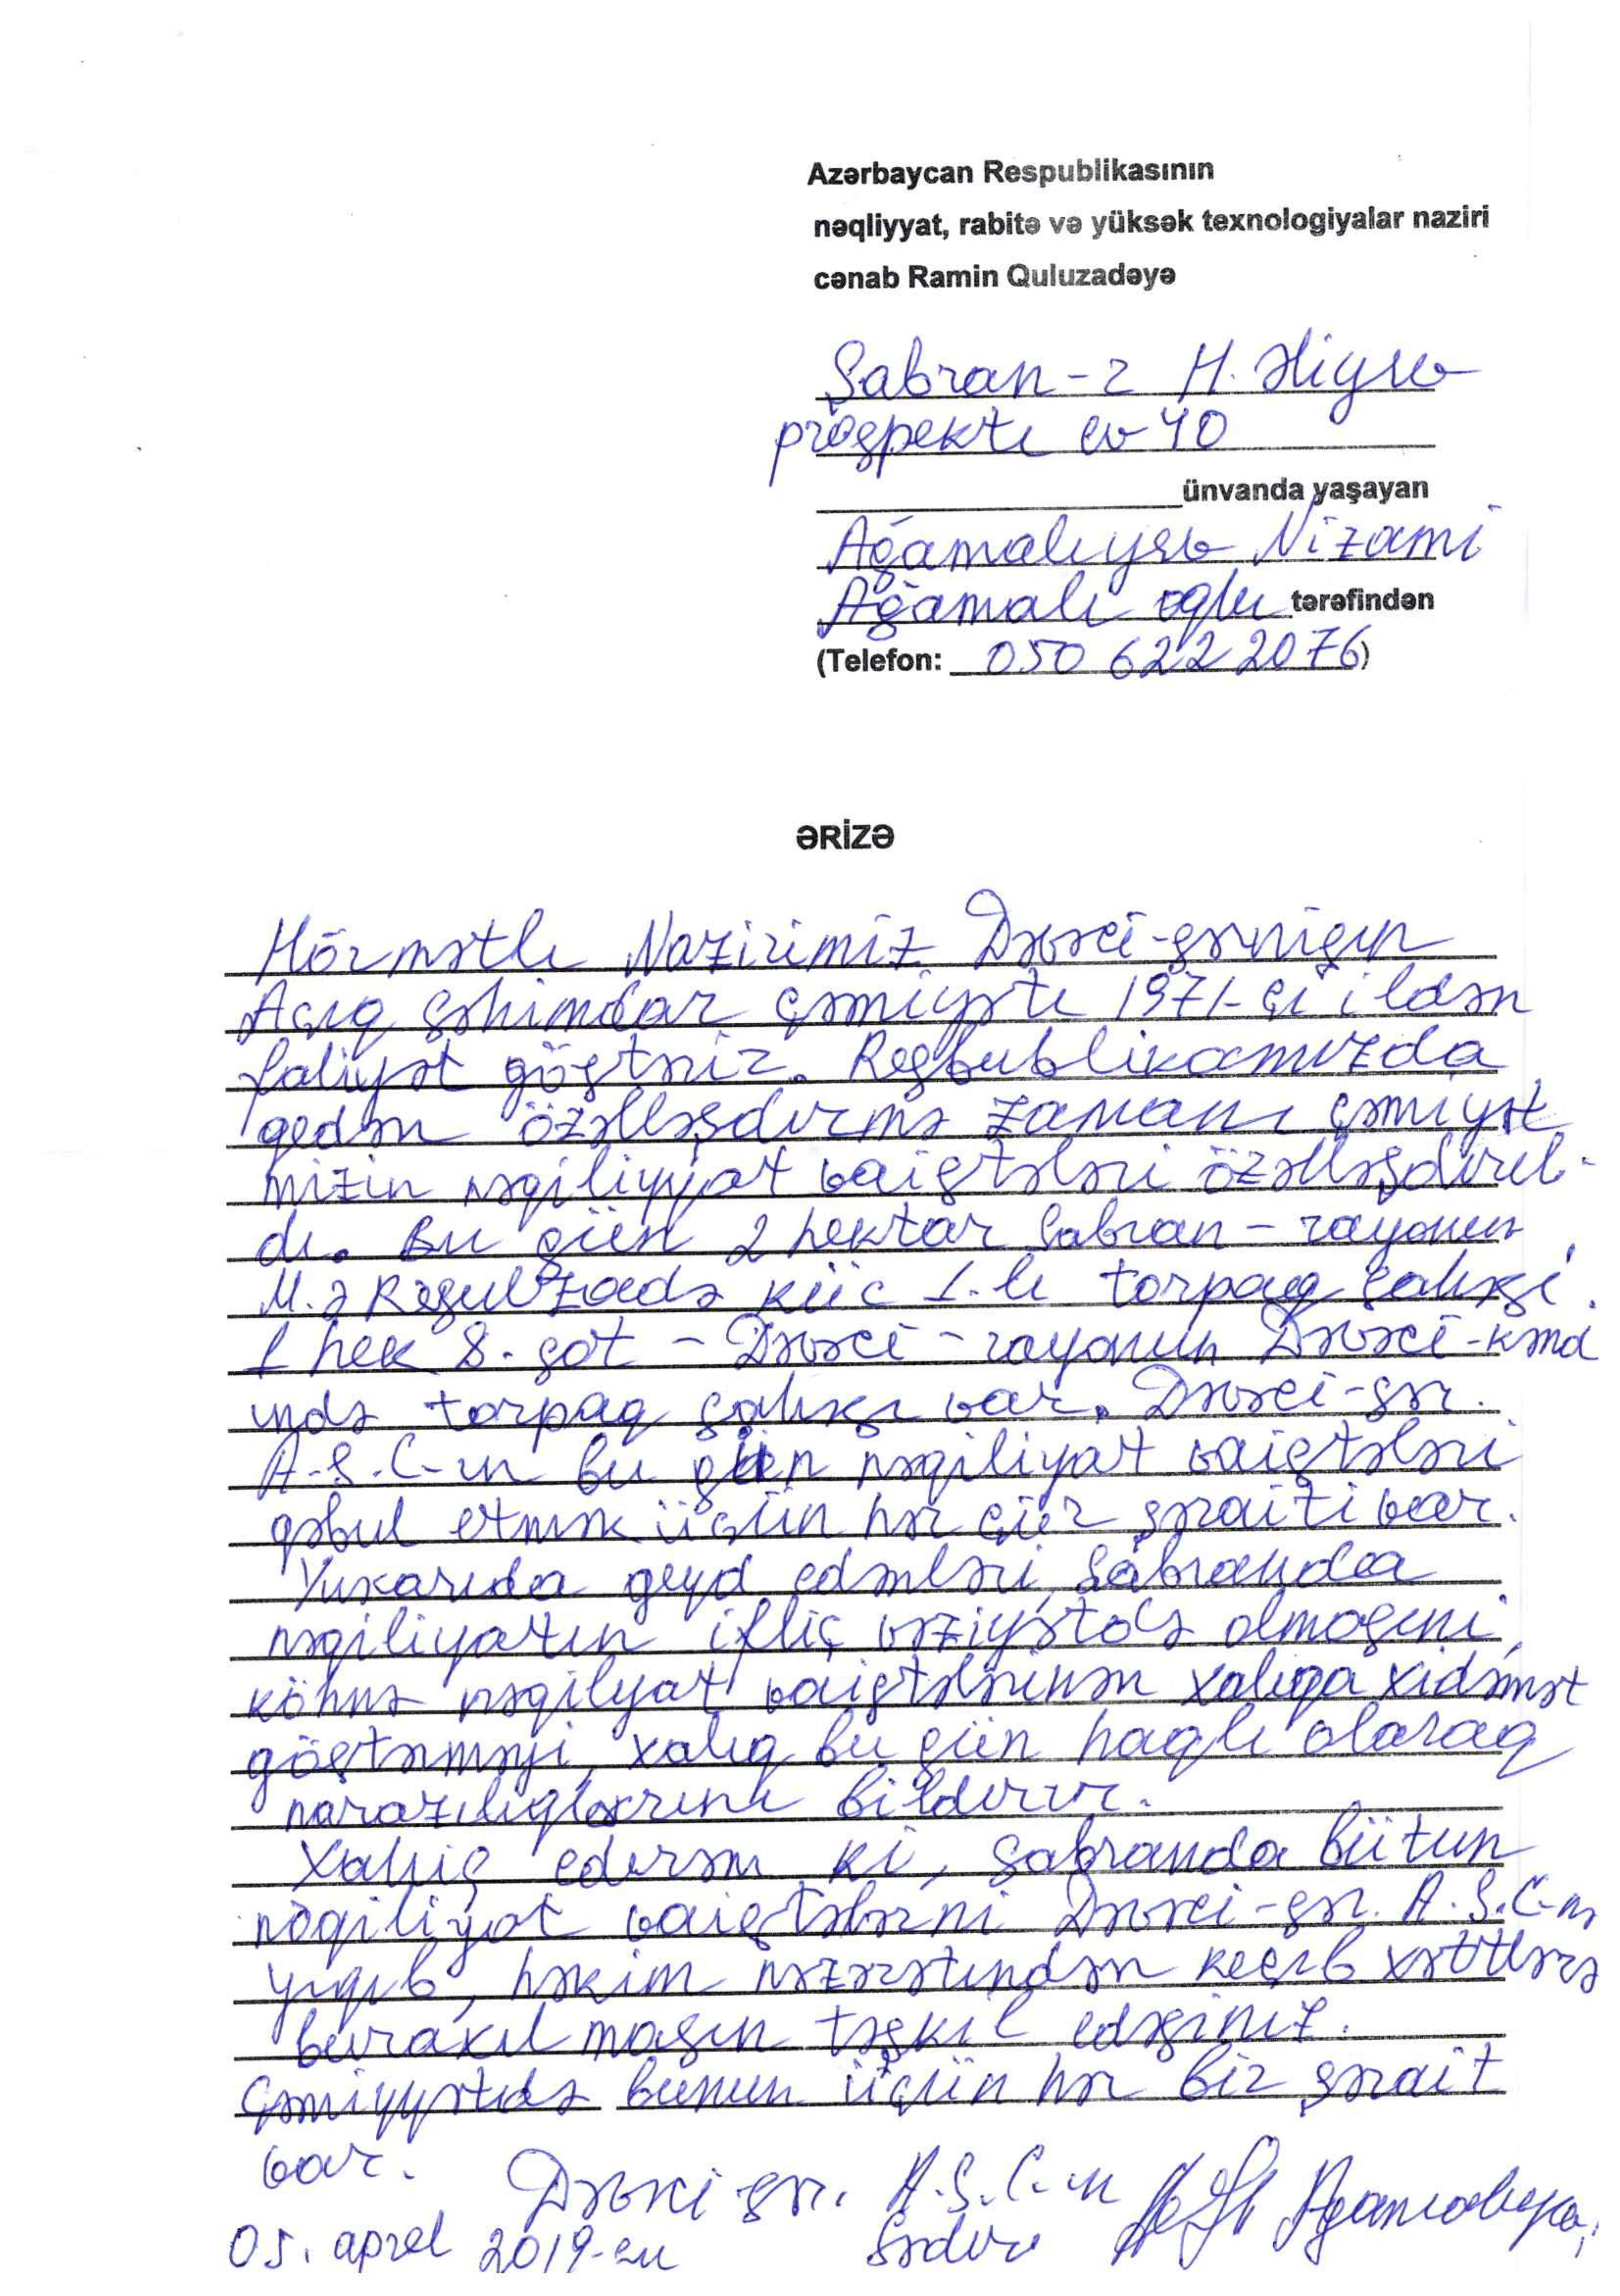 Azərbaycan Respublikasının
nəqliyyat, rabitə və yüksək texnologiyalar naziri
cənab Ramin Quluzadəyə
Şabran-r H. Əliyev
prospekti ev 40
ünvanda yaşayan
Ağamalıyev Nizami
Ağamalı oğlu tərəfindən
(Telefon: 050 622 2076)
ƏRİZƏ
Hörmətli Nazirimiz Dəvəçi-sərnişin
Açıq Səhimdar Cəmiyəti 1971-ci ildən
faliyət göstərir. Resbublikamızda
gedən özəlləşdirmə zamanı cəmiyət
mizin nəqiliyyat vaistələri özəlləşdiril-
di. Bu gün 2 hektar Şabran - rayonun
M.Ə Rəsulzadə küç 1.li torpaq sahəsi.
1 hek 8. sot - Dəvəçi - rayonun Dəvəçi-kənd
ində torpaq sahəsi var. Dəvəçi-sər.
A.S.C-ın bu gün nəqiliyat vaistələri
qəbul etmək üçün hər cür şəraiti var.
Yuxarıda qeyd edənləri, Şabranda
nəqiliyatın iflic vəziyətdə olmasını,
köhnə nəqilyat vaistələrinən xalıqa xidəmət
göstərməyi, xalıq bu gün haqlı olaraq
narazılıqlarını bildirir.
Xahiş edirəm ki, Şabranda bütun
nəqiliyat vaistələrni Dəvəçi-sər. A.S.C-nə
yıqıb, həkim nəzarətindən keçib xəttlərə
buraxılmasın təşkil edəsiniz.
Cəmiyyətdə bunun üçün hər bir şərait
var. Dəvəçi sər. A.S.C-ın Ağamalıyev
05. aprel 2019-cu Sədiri